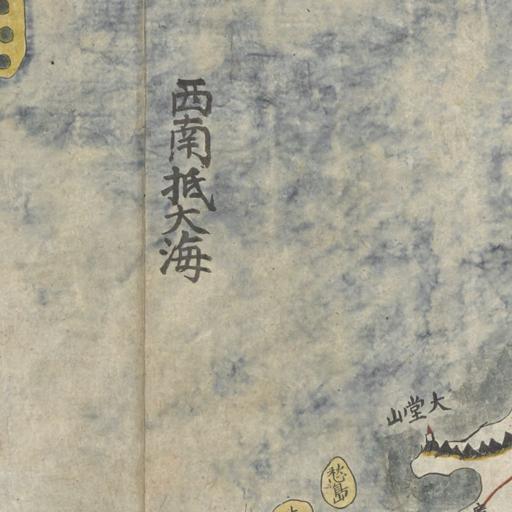 西南抵大海
大堂山
愁島